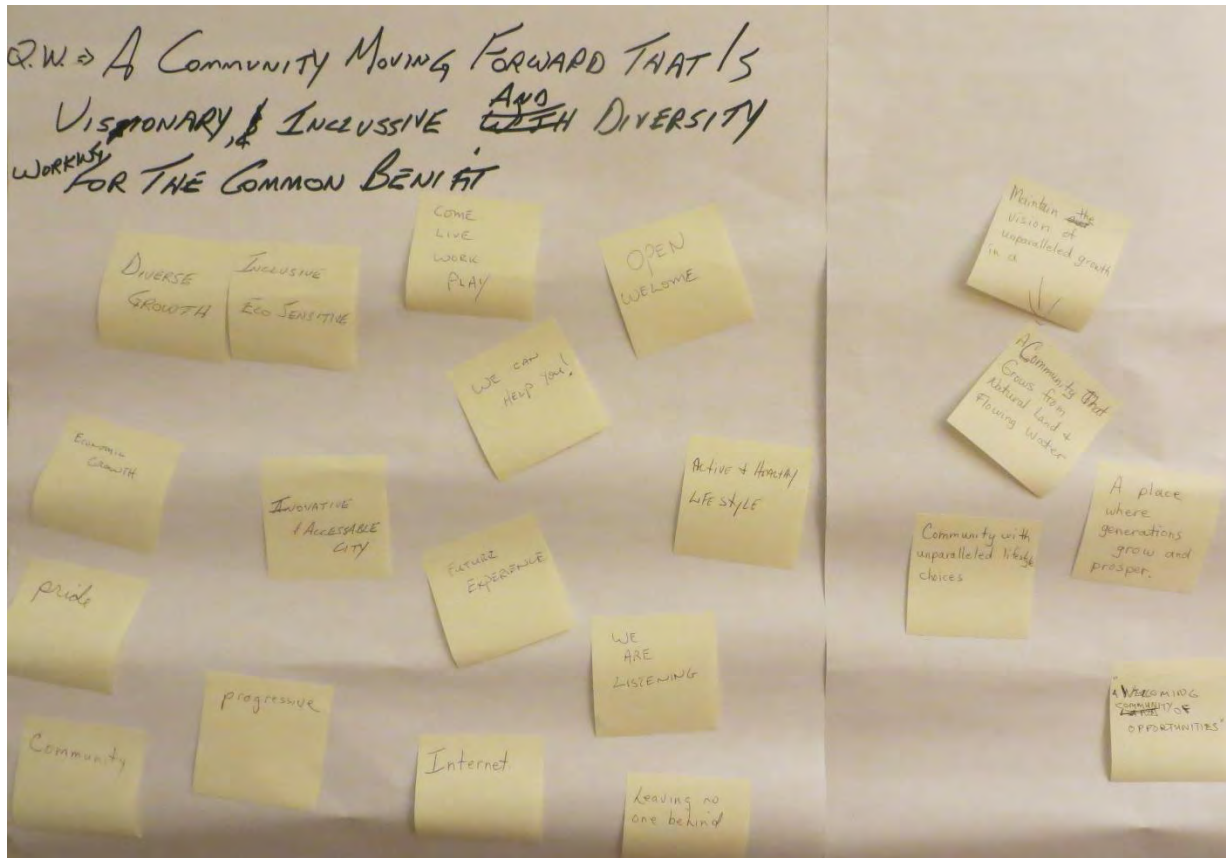 Q.W. ⇒ A COMMUNITY MOVING FORWARD THAT IS
VISIONARY, & INCLUSSIVE AND DIVERSITY
WORKING FOR THE COMMON BENIFIT
DIVERSE
GROWTH
INCLUSIVE
ECO SENSITIVE
COME
LIVE
WORK
PLAY
OPEN
WELOME
WE CAN
HELP YOU!
ECONOMIC
GROWTH
INOVATIVE
& ACCESSABLE
CITY
FUTURE
EXPERIENCE
ACTIVE & HEALTHY
LIFE STYLE
pride
progressive
WE
ARE
LISTENING
Community
Internet
Leaving no
one behind
Maintain the
vision of
unparalleled growth
in a
A Community That
Grows from
Natural Land &
Flowing Water
Community with
unparalleled lifestyle
choices
A place
where
generations
grow and
prosper.
"A WELCOMING
COMMUNITY OF
OPPORTUNITIES"